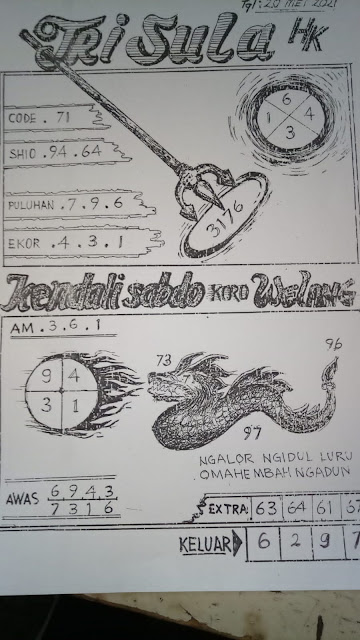 Tgl: 20 MEI 2021
Tri Sula HK
CODE . 71
SHIO . 94 . 64
PULUHAN . 7 . 9 . 6
EKOR . 4 . 3 . 1
6
1 4
3
3176
Kendali sabdo KORO Welang
AM . 3 . 6 . 1
9 4
3 1
73
96
97
NGALOR NGIDUL LURU
OMAHE MBAH NGADUN
AWAS 6 9 4 3
7 3 1 6
EXTRA: 63 64 61
KELUAR 6 2 9 7